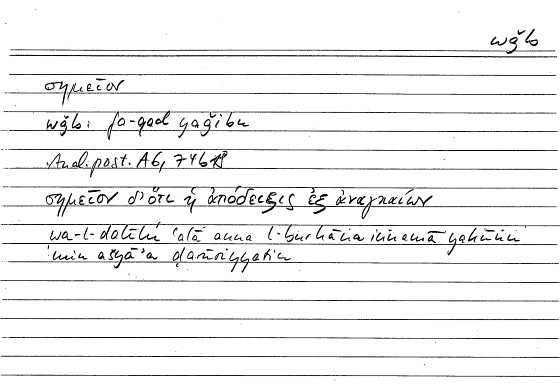 wǧb
σημεῖον
wǧb: fa-qad yaǧibu
Anal. post. A6, 74b18
σημεῖον δ' ὅτι ἡ ἀπόδειξις ἐξ ἀναγκαίων
wa-l-dalīlu ʿalā anna l-burhāna innamā yakūnu
min ašyāʾa ḍarūriyyatin